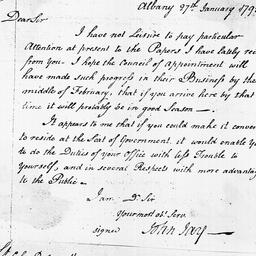 Albany 27th January 179
Dear Sir
I have not Leisure to pay particular
Attention at present to the Papers I have lately re
from you. I hope the Council of Appointment will
have made such progress in their Business by the
middle of February, that if you arrive here by that
time it will probably be in good Season —
It appears to me that if you could make it conve
to reside at the Seat of Government. it would enable y
to do the Duties of your Office with less Trouble to
yourself, and in several Respects with more advantag
to the Public —
I am Dr Sir
Your most obt Servt
signed John Jay —